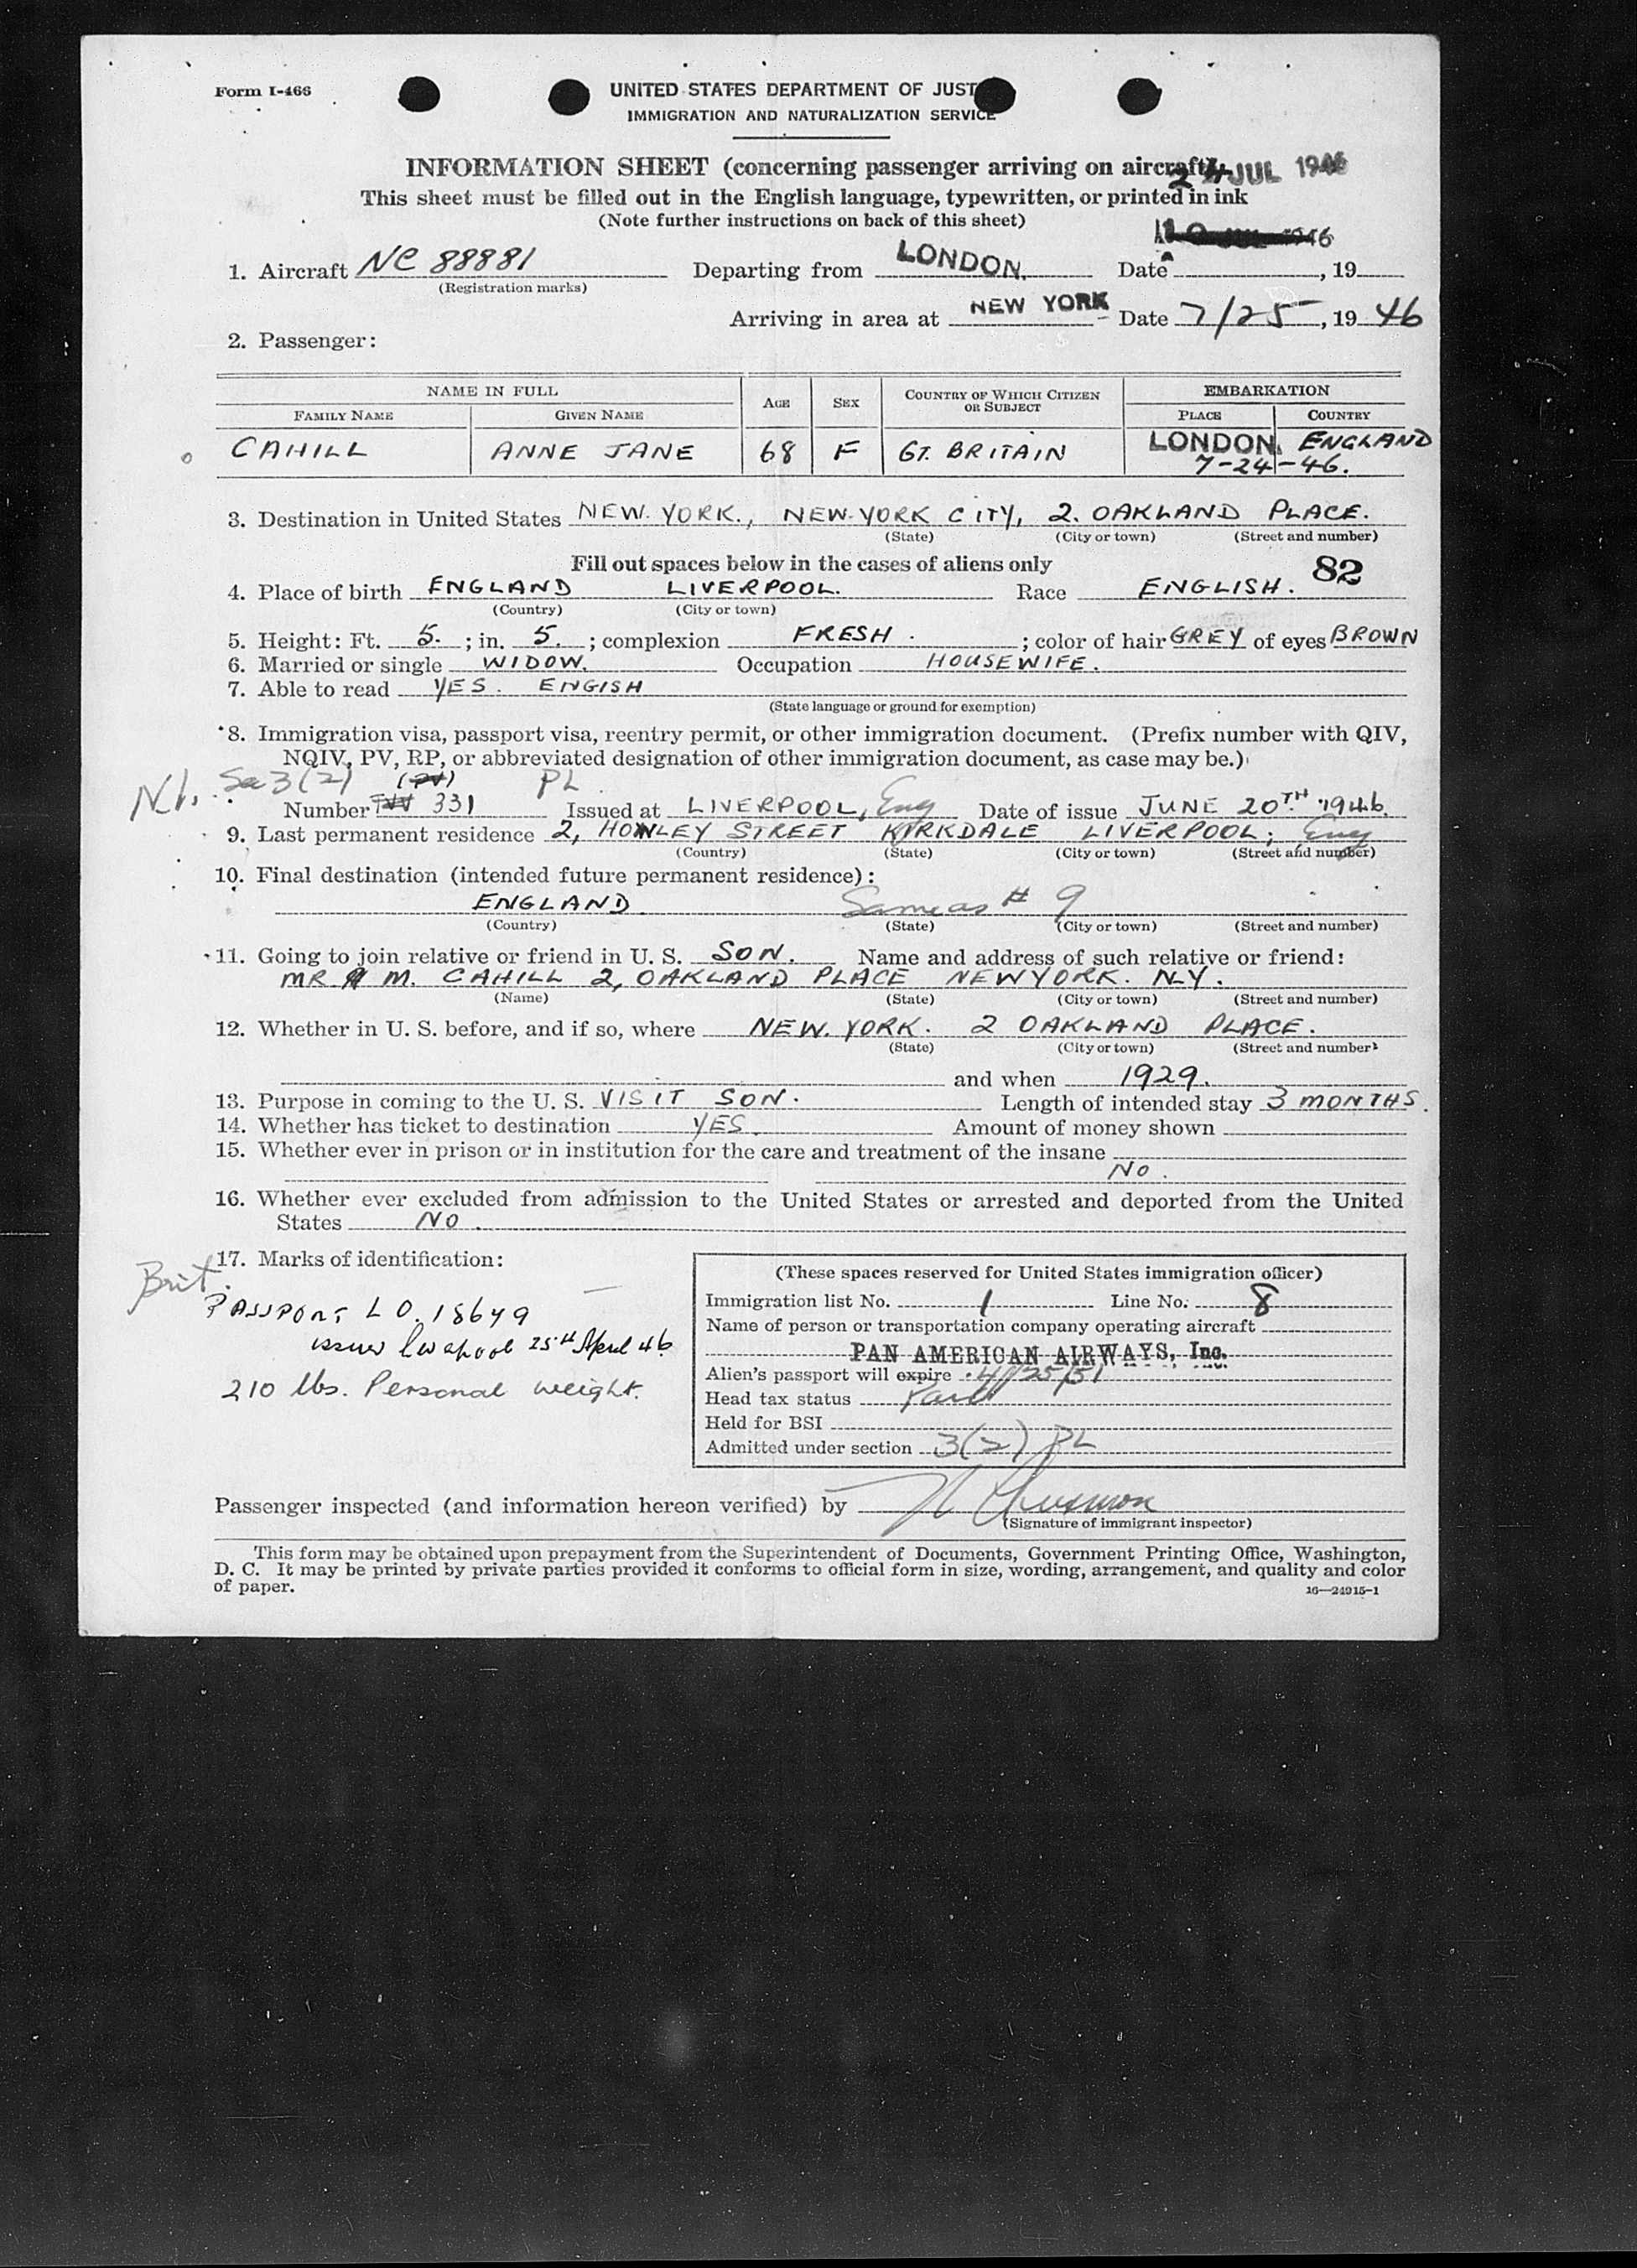 Form I-466
UNITED STATES DEPARTMENT OF JUST
IMMIGRATION AND NATURALIZATION SERVICE
INFORMATION SHEET (concerning passenger arriving on aircraft)
24 JUL 1946
This sheet must be filled out in the English language, typewritten, or printed in ink
(Note further instructions on back of this sheet)
1. Aircraft NC 88881 Departing from LONDON. Date , 19
(Registration marks)
Arriving in area at NEW YORK Date 7/25, 19 46
2. Passenger:
NAME IN FULL AGE SEX COUNTRY OF WHICH CITIZEN OR SUBJECT EMBARKATION
FAMILY NAME GIVEN NAME PLACE COUNTRY
CAHILL ANNE JANE 68 F GT. BRITAIN LONDON. ENGLAND
7-24-46.
3. Destination in United States NEW. YORK., NEW. YORK CITY, 2. OAKLAND PLACE.
(State) (City or town) (Street and number)
Fill out spaces below in the cases of aliens only 82
4. Place of birth ENGLAND LIVERPOOL. Race ENGLISH.
(Country) (City or town)
5. Height: Ft. 5. ; in. 5. ; complexion FRESH . ; color of hair GREY of eyes BROWN
6. Married or single WIDOW. Occupation HOUSEWIFE.
7. Able to read YES. ENGISH
(State language or ground for exemption)
*8. Immigration visa, passport visa, reentry permit, or other immigration document. (Prefix number with QIV,
NQIV, PV, RP, or abbreviated designation of other immigration document, as case may be.)
3(2) (PV) PL
Number 331 Issued at LIVERPOOL, Eng Date of issue JUNE 20TH 1946.
9. Last permanent residence 2, HOWLEY STREET KIRKDALE LIVERPOOL; Eng
(Country) (State) (City or town) (Street and number)
10. Final destination (intended future permanent residence):
ENGLAND. Same as # 9
(Country) (State) (City or town) (Street and number)
11. Going to join relative or friend in U. S. SON. Name and address of such relative or friend:
MR M. CAHILL 2, OAKLAND PLACE NEW YORK. N.Y.
(Name) (State) (City or town) (Street and number)
12. Whether in U. S. before, and if so, where NEW. YORK. 2 OAKLAND PLACE.
(State) (City or town) (Street and number)
and when 1929.
13. Purpose in coming to the U. S. VISIT SON. Length of intended stay 3 MONTHS.
14. Whether has ticket to destination YES. Amount of money shown
15. Whether ever in prison or in institution for the care and treatment of the insane
NO.
16. Whether ever excluded from admission to the United States or arrested and deported from the United
States NO.
17. Marks of identification:
Brit.
PASSPORT LO. 18649
issued Liverpool 25th April 46
210 lbs. Personal weight.
(These spaces reserved for United States immigration officer)
Immigration list No. 1 Line No. 8
Name of person or transportation company operating aircraft
PAN AMERICAN AIRWAYS, Inc.
Alien's passport will expire 4/25/51
Head tax status Paid
Held for BSI
Admitted under section 3(2) PL
Passenger inspected (and information hereon verified) by
(Signature of immigrant inspector)
This form may be obtained upon prepayment from the Superintendent of Documents, Government Printing Office, Washington,
D. C. It may be printed by private parties provided it conforms to official form in size, wording, arrangement, and quality and color
of paper.
16—24915-1